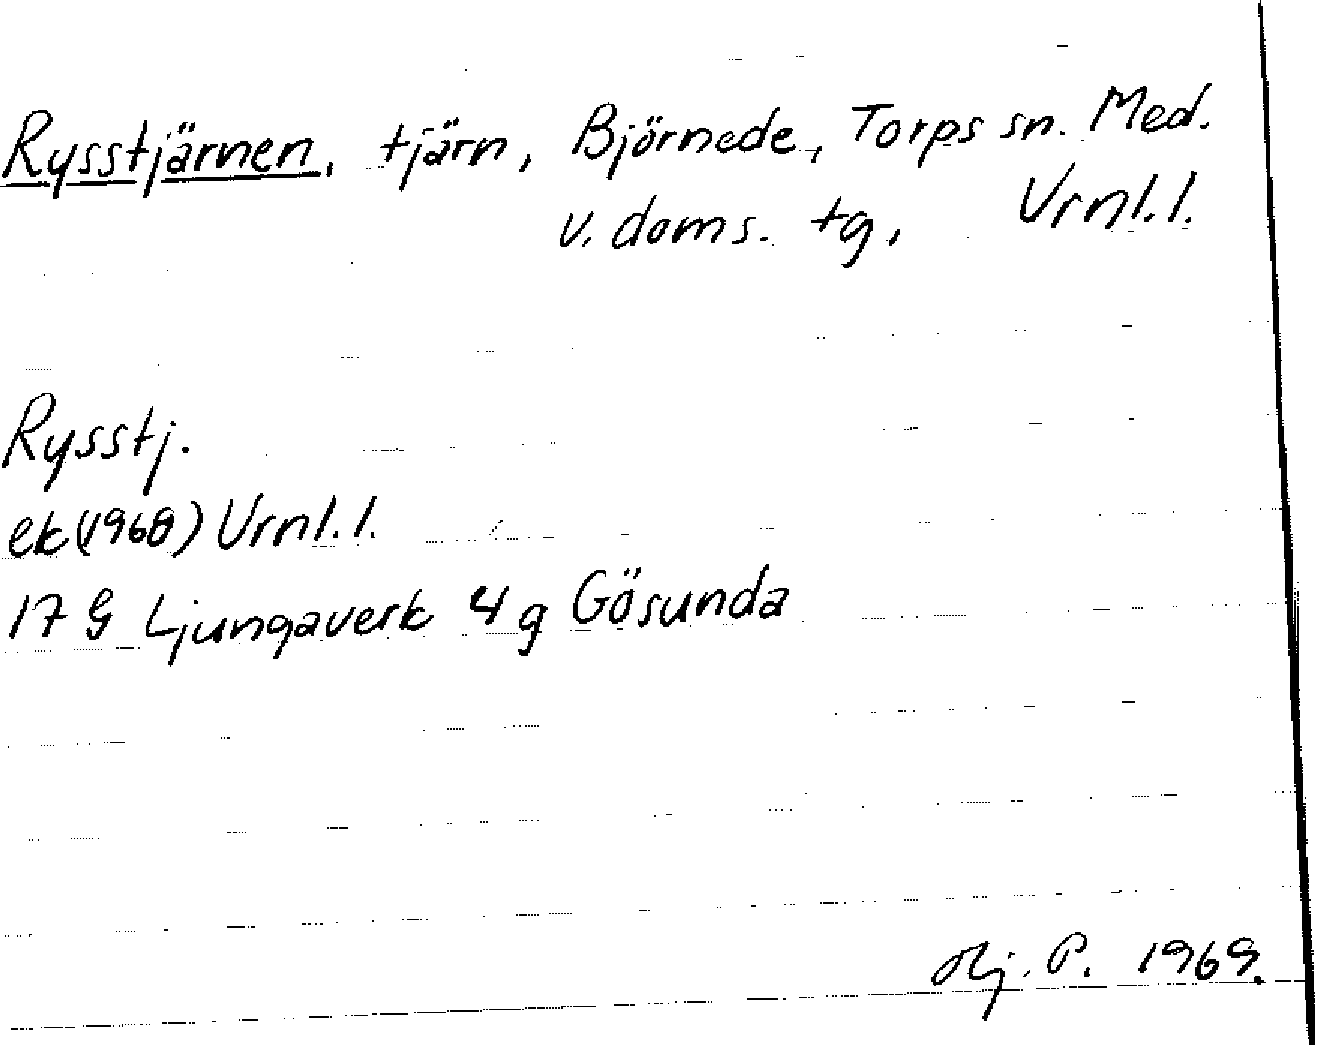 Rysstjärnen, tjärn, Björnede, Torps sn. Med.
v. doms. tg, Vrnl.l.
Rysstj.
ek(1968) Vrnl.l.
17 G Ljungaverk 4 g Gösunda
Hj. P. 1969.